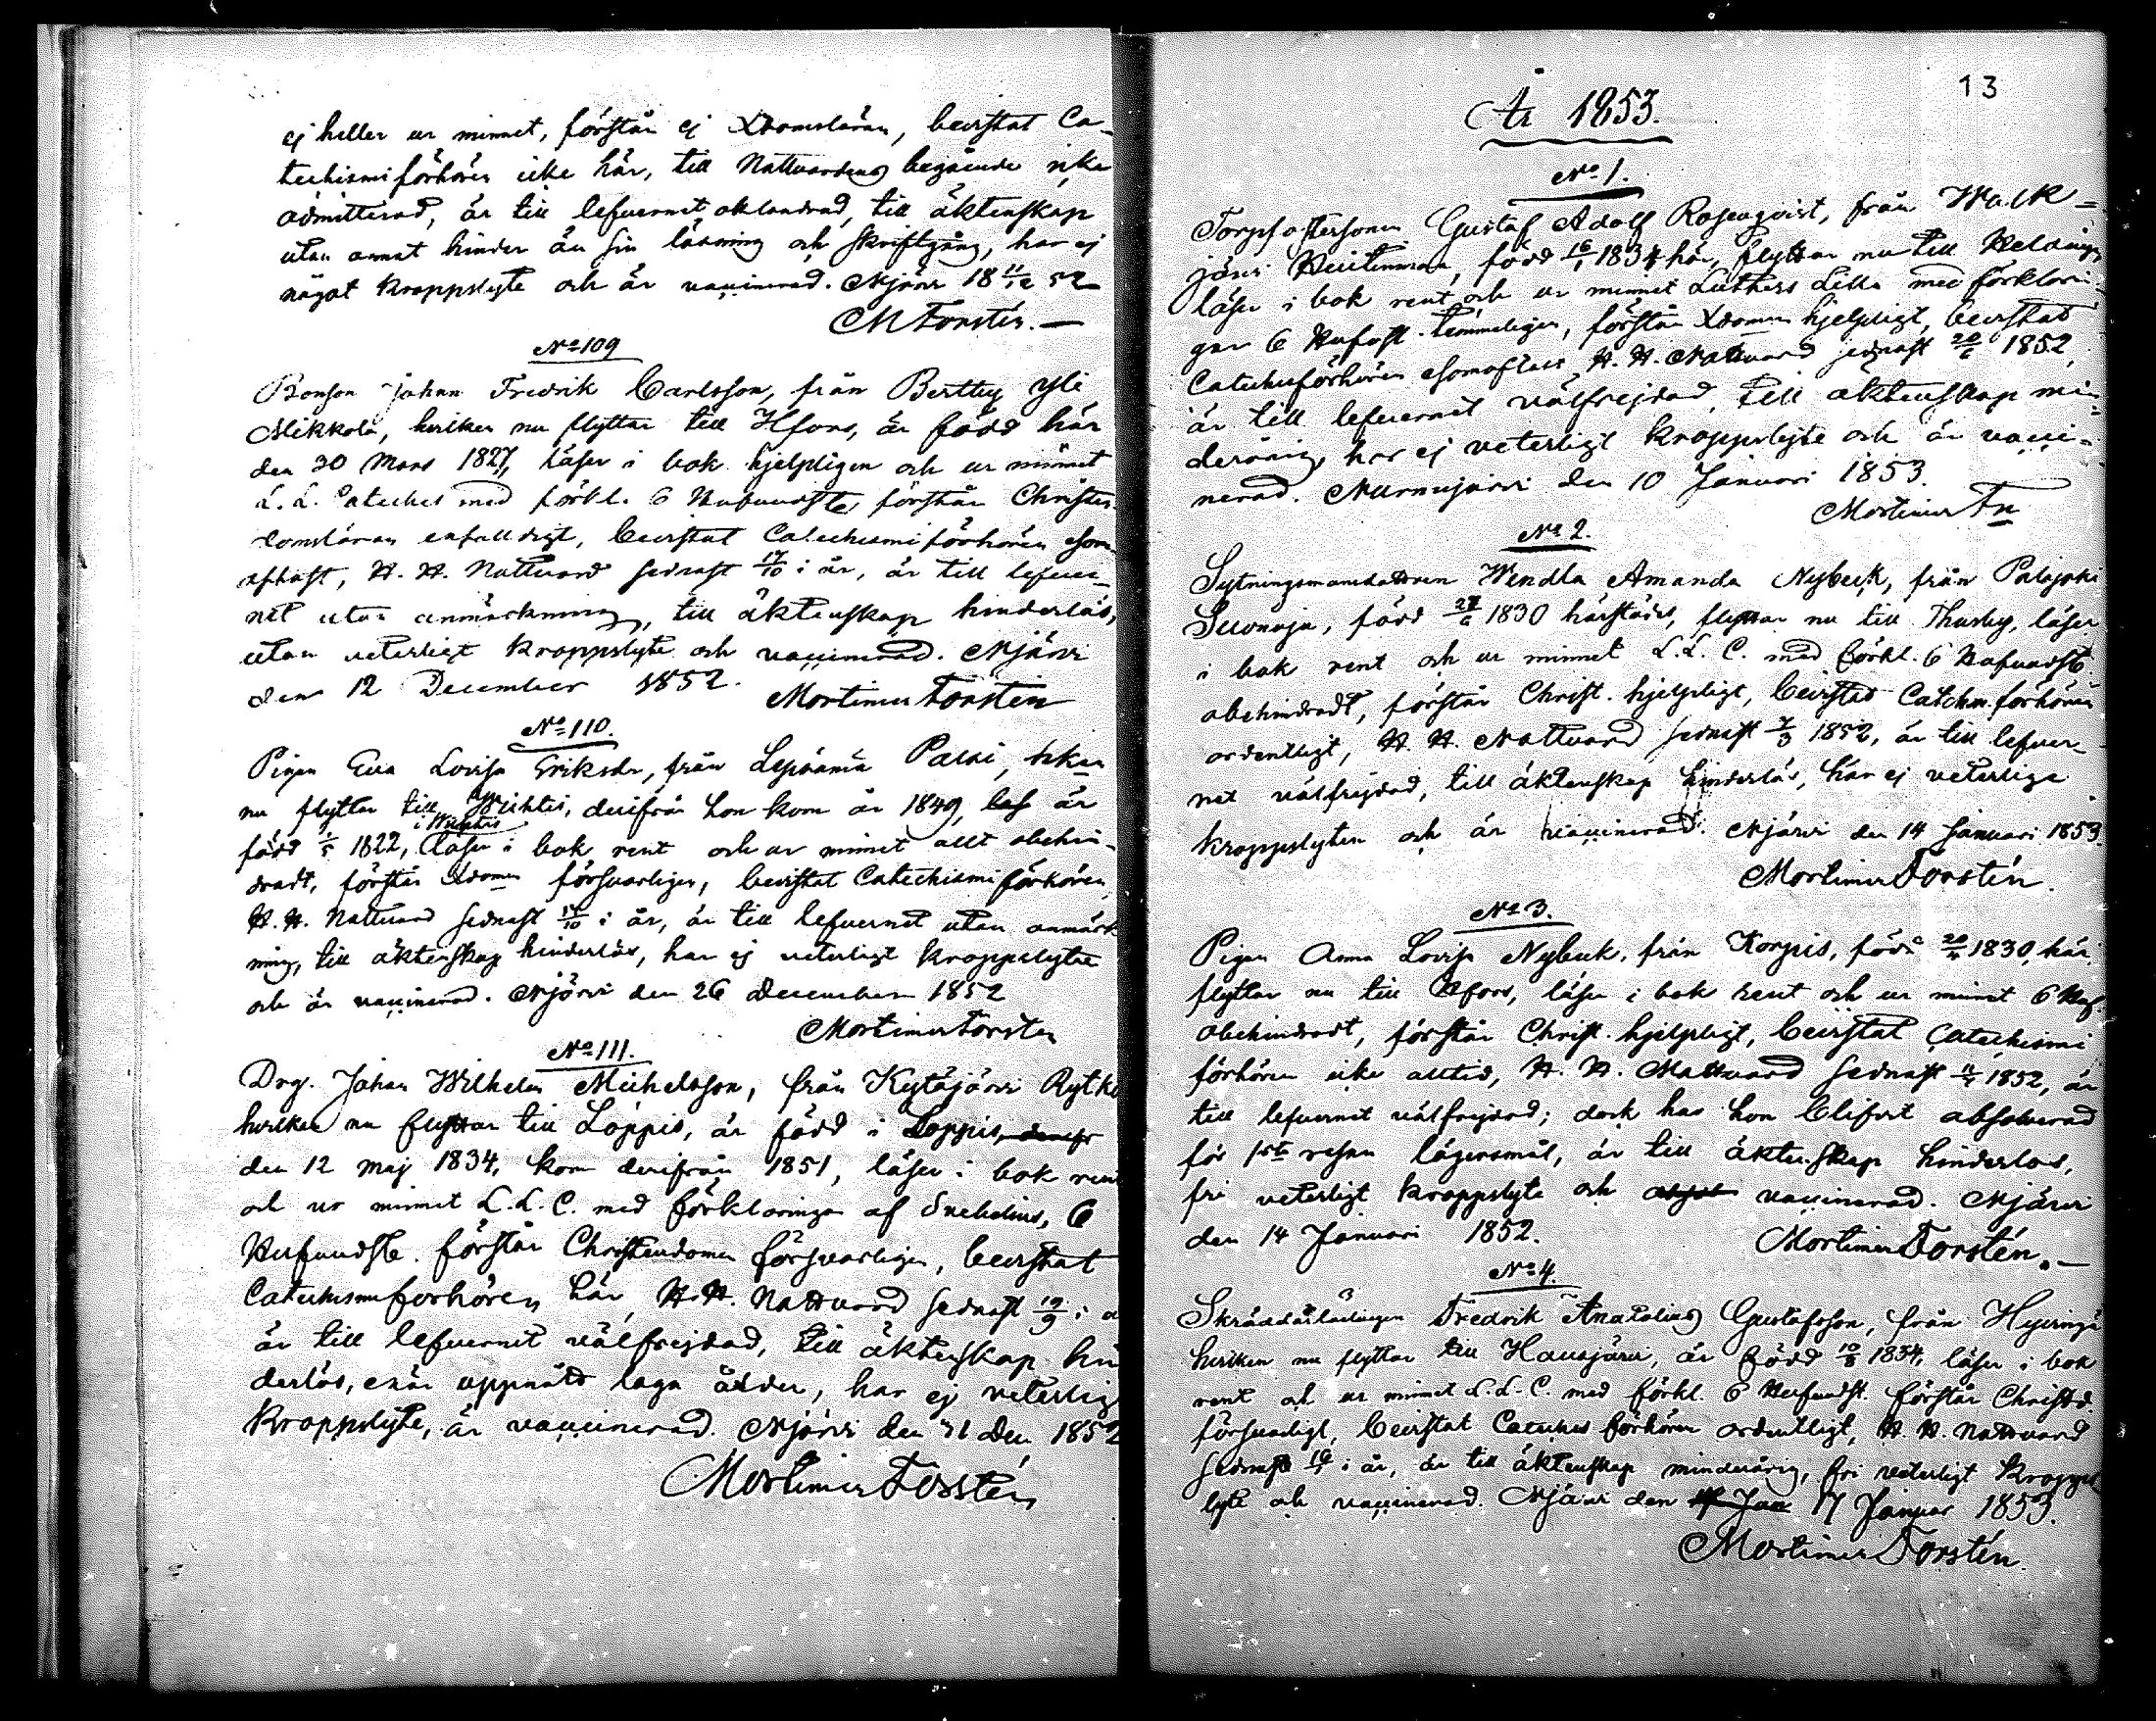 ej heller ur minnet, förstår ej Xdomsläran, bevistat Ca-
techismiförhören icke här, till Nattvardens begående icke
admitterad, är till lefvernet oklandrad, till äktenskap
utan annat hinder än sin läsning och skriftgång, har ej
något kroppslyte och är vaccinerad. Njärvi 18 11/12 52
M Forstén.—
No 109
Bonson Johan Fredrik Carlsson, från Berttby Yli
Mikkola, hvilken nu flyttar till Hfors, är född här
den 30 Mars 1827, läser i bok hjelpligen och ur minnet
L. L. Cateches med förkl. 6 Hufvudst. förstår Christen-
domsläran enfalldigt, bevistat Catechismiförhören som
oftast, H. H. Nattvard sednast 17/10 i år, är till lefver-
net utan anmärkning, till äktenskap hinderlös,
utan veterligt kroppslyte och vaccinerad. Njärvi
den 12 December 1852.
Mortimer Forstén
No 110.
Pigan Eva Lovisa Eriksdr, från Lepsämä Palai, hvilken
nu flyttar till Wichtis, derifrån hon kom år 1849, är
född 1/5 1822, i Wichtis läser i bok rent och ur minnet allt obehin-
dradt, förstår Xdomen försvarligen, bevistat Catechismiförhören,
H. H. Nattvard sednast 17/10 i år, är till lefvernet utan anmärk
ning, till äktenskap hinderlös, har ej veterligt kroppslyte
och är vaccinerad. Njärvi den 26 December 1852
Mortimer Forstén
No 111.
Drg. Johan Wilhelm Michelsson, från Kytäjärvi Rytko
hvilken nu flyttar till Loppis, är född i Loppis,
den 12 Maj 1834, kom derifrån 1851, läser i bok rent
och ur minnet L. L. C. med förklaringar af Svebelius, 6
Hufvudst. förstår Christendomen försvarligen, bevistat
Catechismiförhören här, H. H. Nattvard sednast 19/9 i å
är till lefvernet välfrejdad, till äktenskap hin
derlös, enär uppnått laga ålder, har ej veterlig
kroppslyte, är vaccinerad. Njärvi den 31 Dec 1852
Mortimer Forstén
13
År 1853.
No 1.
Torpsostersonen Gustaf Adolf Rosenqvist, från Walk=
järvi, född 16/1 1834 här, flyttar nu till Helsinge,
läser i bok rent och ur minnet Luthers Lilla med förklarin-
gar 6 Hufvst. temmeligen, förstår Xdomen hjelpligt, bevistat
Catechesförhören somoftast, H. H. Nattvard sednast 20/6 1852,
är till lefvernet välfrejdad, till äktenskap min
derårig, har ej veterligt kroppslyte och är vacci-
nerad. Nurmijärvi den 10 Januari 1853.
Mortimer Fn
No 2.
Sytningsmansdottren Wendla Amanda Nybeck, från Palojoki
Suonoja, född 28/6 1830 härstädes, flyttar nu till Thusby, läser
i bok rent och ur minnet L. L. C. med förkl. 6 Hufvudst.
obehindradt, förstår Christ. hjelpligt, bevistat Catechm.förhören
ordentligt, H. H. Nattvard sednast 7/3 1852, är till lefver-
net välfrejdad, till äktenskap hinderlös, har ej veterliga
kroppslyten och är vaccinerad. Njärvi den 14 Januari 1853.
Mortimer Forstén.
No 3.
Pigan Anna Lovisa Nybeck, från Korpis, född 1830, här,
flyttar nu till Hfors, läser i bok rent och ur minnet 6 Huf.
obehindradt, förstår Christ. hjelpligt, bevistat Catechismi
förhören icke alltid, H. H. Nattvard sednast 1852, är
till lefvernet välfrejdad; dock har hon blifvit absolverad
för 1sta resan lägersmål, är till äktenskap hinderlös,
fri veterligt kroppslyte och vaccinerad. Njärvi
den 14 Januari 1852.
Mortimer Forstén.—
No 4.
Skräddarlärlingen Fredrik Anatolius Gustafsson, från Hyvinge
hvilken nu flyttar till Hausjärvi, är född 10/8 1834, läser i bok
rent och ur minnet L. L. C. med förkl. 6 Hufvudst. förstår Christd.
försvarligt, bevistat Cateches förhören ordentligt, H. H. Nattvard
sednast i år, är till äktenskap minderårig, fri veterligt kropps
lyte och vaccinerad. Njärvi den 17 Januar 1853.
Mortimer Forstén.